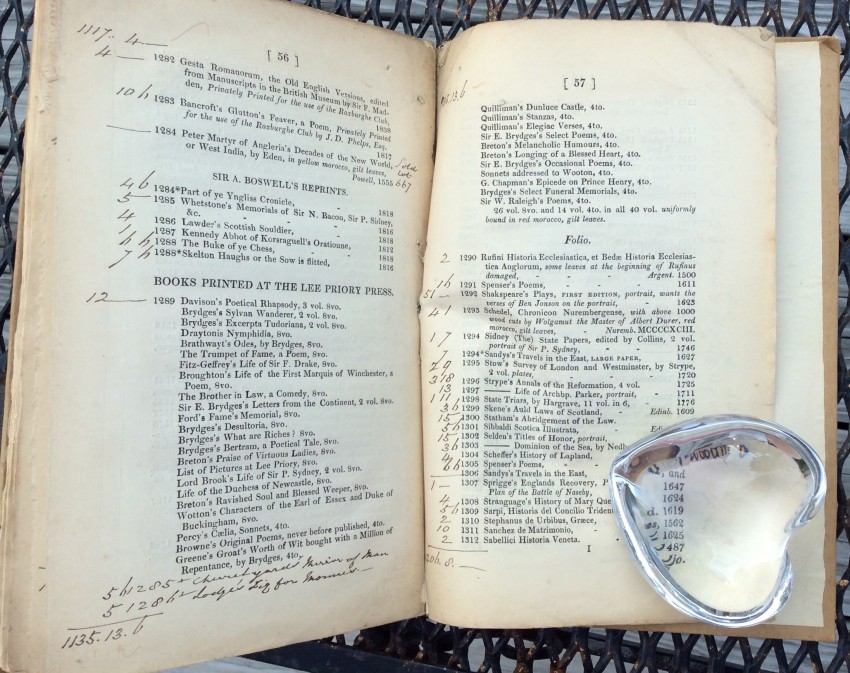 1117. 4 —
[ 56 ]
4 — 1282 Gesta Romanorum, the Old English Versions, edited
from Manuscripts in the British Museum by Sir F. Mad-
den, Privately Printed for the use of the Roxburghe Club,
1838
1283 Bancroft's Glutton's Feaver, a Poem, Privately Printed
for the use of the Roxburghe Club by J. D. Phelps, Esq.
1817
— 1284 Peter Martyr of Angleria's Decades of the New World,
or West India, by Eden, in yellow morocco, gilt leaves,
Powell, 1555
SIR A. BOSWELL'S REPRINTS.
1284*Part of ye Yngliss Cronicle, - 1818
5 — 1285 Whetstone's Memorials of Sir N. Bacon, Sir P. Sidney,
&c. - 1816
4 1286 Lawder's Scottish Souldier, - 1818
1287 Kennedy Abbot of Korsraguell's Oratioune, 1812
1288 The Buke of ye Chess, - 1818
1288*Skelton Haughs or the Sow is flitted, - 1816
BOOKS PRINTED AT THE LEE PRIORY PRESS.
12 — 1289 Davison's Poetical Rhapsody, 3 vol. 8vo.
Brydges's Sylvan Wanderer, 2 vol. 8vo.
Brydges's Excerpta Tudoriana, 2 vol. 8vo.
Draytonis Nymphidia, 8vo.
Brathwayt's Odes, by Brydges, 8vo.
The Trumpet of Fame, a Poem, 8vo.
Fitz-Geffrey's Life of Sir F. Drake, 8vo.
Broughton's Life of the First Marquis of Winchester, a
Poem, 8vo.
The Brother in Law, a Comedy, 8vo.
Sir E. Brydges's Letters from the Continent, 2 vol. 8vo.
Ford's Fame's Memorial, 8vo.
Brydges's Desultoria, 8vo.
Brydges's What are Riches? 8vo.
Brydges's Bertram, a Poetical Tale, 8vo.
Breton's Praise of Virtuous Ladies, 8vo.
List of Pictures at Lee Priory, 8vo.
Lord Brook's Life of Sir P. Sydney, 2 vol. 8vo.
Life of the Duchess of Newcastle, 8vo.
Breton's Ravished Soul and Blessed Weeper, 8vo.
Wotton's Characters of the Earl of Essex and Duke of
Buckingham, 8vo.
Percy's Cælia, Sonnets, 4to.
Browne's Original Poems, never before published, 4to.
Greene's Groat's Worth of Wit bought with a Million of
Repentance, by Brydges, 4to.
1135.13.6
[ 57 ]
Quilliman's Dunluce Castle, 4to.
Quilliman's Stanzas, 4to.
Quilliman's Elegiac Verses, 4to.
Sir E. Brydges's Select Poems, 4to.
Breton's Melancholic Humours, 4to.
Breton's Longing of a Blessed Heart, 4to.
Sir E. Brydges's Occasional Poems, 4to.
Sonnets addressed to Wooton, 4to.
G. Chapman's Epicede on Prince Henry, 4to.
Brydges's Select Funeral Memorials, 4to.
Sir W. Raleigh's Poems, 4to.
26 vol. 8vo. and 14 vol. 4to. in all 40 vol. uniformly
bound in red morocco, gilt leaves.
Folio.
2 1290 Rufini Historia Ecclesiastica, et Bedæ Historia Ecclesias-
tica Anglorum, some leaves at the beginning of Rufinus
damaged, - - Argent. 1500
1291 Spenser's Poems, - - 1611
1292 Shakspeare's Plays, FIRST EDITION, portrait, wants the
verses of Ben Jonson on the portrait, - 1623
1293 Schedel, Chronicon Nurembergense, with above 1000
wood cuts by Wolgamut the Master of Albert Durer, red
morocco, gilt leaves, Nuremb. MCCCCXCIII.
1294 Sidney (The) State Papers, edited by Collins, 2 vol.
portrait of Sir P. Sydney, - 1746
1294*Sandys's Travels in the East, LARGE PAPER, 1627
1295 Stow's Survey of London and Westminster, by Strype,
2 vol. plates, - - 1720
1296 Strype's Annals of the Reformation, 4 vol. 1725
1297 —— Life of Archbp. Parker, portrait, - 1711
1298 State Triars, by Hargrave, 11 vol. in 6, - 1776
1299 Skene's Auld Laws of Scotland, - Edinb. 1609
1300 Statham's Abridgement of the Law.
1301 Sibbaldi Scotica Illustrata, -
1302 Selden's Titles of Honor, portrait,
1303 —— Dominion of the Sea, by Nedh
1304 Scheffer's History of Lapland,
1305 Spenser's Poems, - -
1306 Sandys's Travels in the East,
1307 Sprigge's Englands Recovery,
Plan of the Battle of Naseby,
4 1308 Stranguage's History of Mary Que
1309 Sarpi, Historia del Concilio Trident
2 1310 Stephanus de Urbibus, Græce,
10 1311 Sanchez de Matrimonio, -
2 1312 Sabellici Historia Veneta. -
I
, and
1647
1624
d. 1619
1562
1625